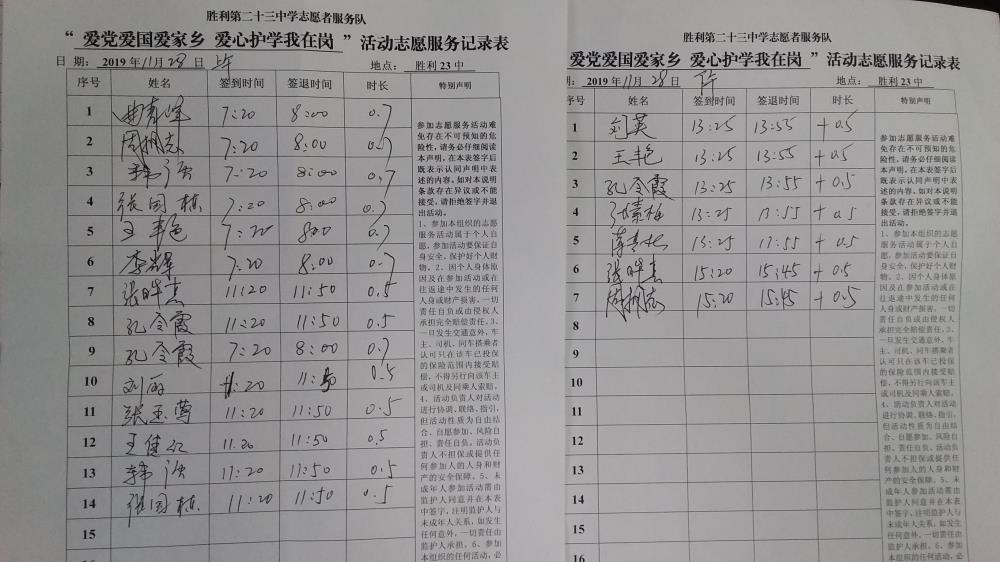 胜利第二十三中学志愿者服务队
“ 爱党爱国爱家乡 爱心护学我在岗 ”活动志愿服务记录表
日 期： 2019 年 11 月 28 日
地点： 胜利 23 中
序号 姓名 签到时间 签退时间 时长 特别声明
1 7:20 8:00 0.7
2 周树志 7:20 8:00 0.7
3 韩滨 7:20 8:00 0.7
4 张国栋 7:20 8:00 0.7
5 王艳 7:20 8:00 0.7
6 李辉 7:20 8:00 0.7
7 11:20 11:50 0.5
8 孔令霞 11:20 11:50 0.5
9 孔令霞 7:20 8:00 0.7
10 刘丽 11:20 11:50 0.5
11 张玉莺 11:20 11:50 0.5
12 11:20 11:50 0.5
13 韩滨 11:20 11:50 0.5
14 张国栋 11:20 11:50 0.5
15
参加志愿服务活动难
免存在不可预知的危
险性，请务必仔细阅读
本声明，在本表签字后
既表示认同声明中表
述的内容。如对本说明
条款存在异议或不能
接受，请拒绝签字并退
出活动。
1、参加本组织的志愿
服务活动属于个人自
愿，参加活动要保证自
身安全，保护好个人财
物。2、因个人身体原
因及在参加活动或在
往返途中发生的任何
人身或财产损害，一切
责任自负或由侵权人
承担完全赔偿责任。3、
一旦发生交通意外，车
主、司机、同车搭乘者
认可只在该车已投保
的保险范围内接受赔
偿，不得另行向该车主
或司机及同乘人索赔。
4、活动负责人对活动
进行协调、联络、指引，
但活动性质为自由结
合、自愿参加、风险自
担、责任自负。活动负
责人不担保或提供任
何参加人的人身和财
产的安全保障。5、未
成年人参加活动需由
监护人同意并在本表
中签字，注明监护人与
未成年人关系，如发生
任何意外，一切责任由
监护人承担。6、参加
本组织的任何活动，必
胜利第二十三中学志愿者服务队
爱党爱国爱家乡 爱心护学我在岗 ”活动志愿服务记录表
期： 2019 年 11 月 28 日
地点： 胜利 23 中
序号 姓名 签到时间 签退时间 时长 特别声明
1 刘英 13:25 13:55 +0.5
2 王艳 13:25 13:55 +0.5
3 孔令霞 13:25 13:55 +0.5
4 13:25 13:55 +0.5
5 13:25 13:55 +0.5
6 15:20 15:45 +0.5
7 周树志 15:20 15:45 +0.5
8
9
10
11
12
13
14
15
16
参加志愿服务活动难
免存在不可预知的危
险性，请务必仔细阅读
本声明，在本表签字后
既表示认同声明中表
述的内容。如对本说明
条款存在异议或不能
接受，请拒绝签字并退
出活动。
1、参加本组织的志愿
服务活动属于个人自
愿，参加活动要保证自
身安全，保护好个人财
物。2、因个人身体原
因及在参加活动或在
往返途中发生的任何
人身或财产损害，一切
责任自负或由侵权人
承担完全赔偿责任。3、
一旦发生交通意外，车
主、司机、同车搭乘者
认可只在该车已投保
的保险范围内接受赔
偿，不得另行向该车主
或司机及同乘人索赔。
4、活动负责人对活动
进行协调、联络、指引，
但活动性质为自由结
合、自愿参加、风险自
担、责任自负。活动负
责人不担保或提供任
何参加人的人身和财
产的安全保障。5、未
成年人参加活动需由
监护人同意并在本表
中签字，注明监护人与
未成年人关系，如发生
任何意外，一切责任由
监护人承担。6、参加
本组织的任何活动，必